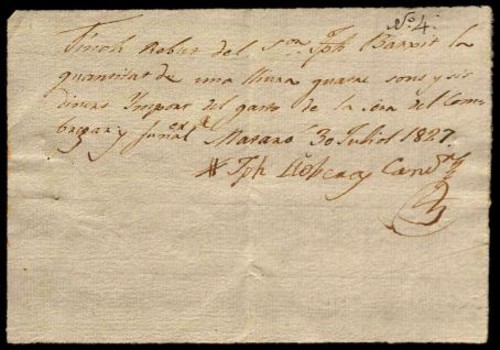 No. 4.
Tinch Rebut del Sor. Jph Barrit la
quantitat de una lliura quatre sous y sis
diners Import del gasto de la cera del Com-
bregar y funeral Mataró 30 Juliol 1827.
Jph